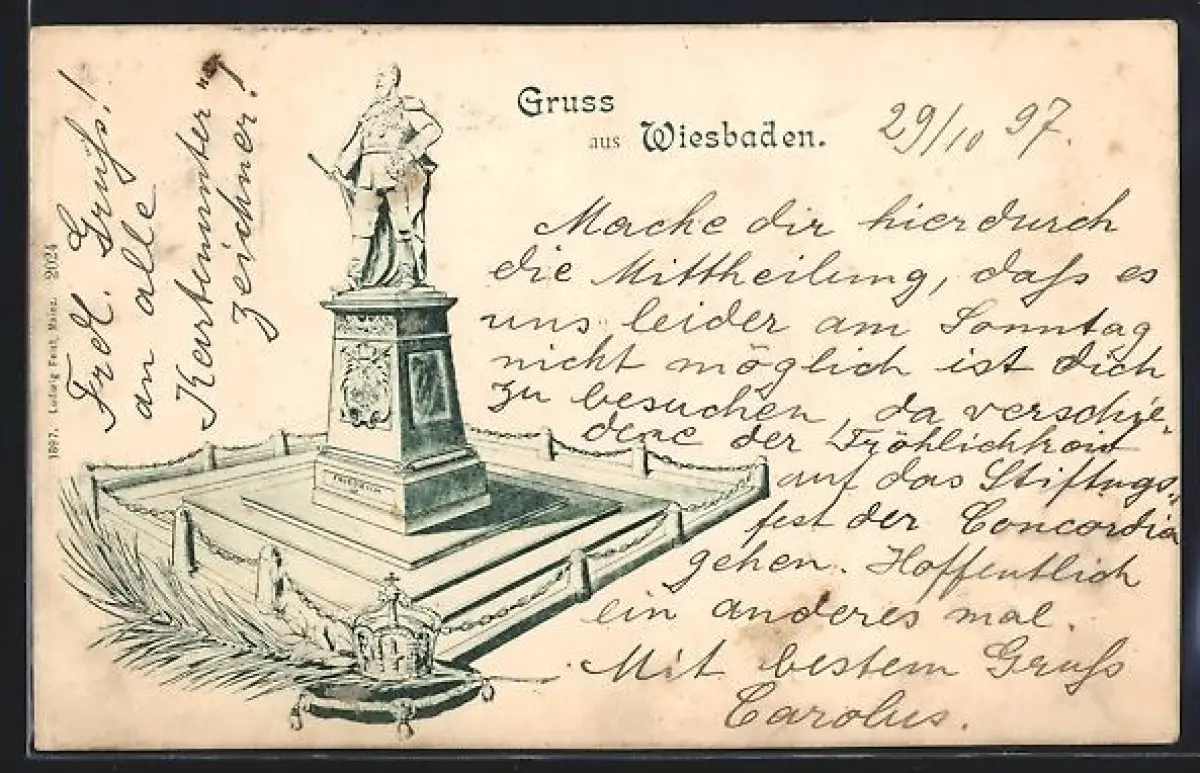 Gruss
aus Wiesbaden.
29/10 97.
Mache dir hierdurch
die Mittheilung, daß es
uns leider am Sonntag
nicht möglich ist dich
zu besuchen, da verschie-
dene der Fröhlichkeit
auf das Stiftugs-
fest der Concordia
gehen. Hoffentlich
ein anderes mal.
Mit bestem Gruß
Carolus.
Frdl. Gruß!
an alle
unter
zeichner!
1897. Ludwig Feist, Mainz. 2024